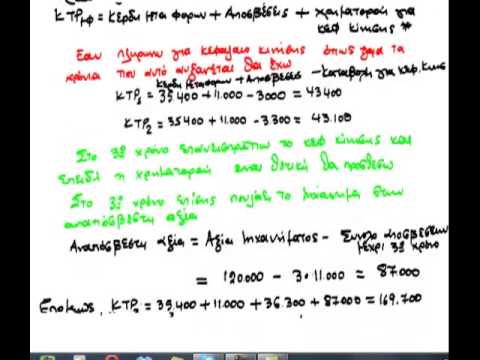 ΚΤΡμφ = Κέρδη μετα φορων + Αποσβέσεις + χρηματοροή για κεφ κίνησης *
Εαν πληρωνω για κεφαλαιο κινήσης όπως για τα
χρόνια που αυτό αυξανεται θα έχω
Κέρδη μεταφορων + Αποσβεσεις - Καταβολή για κεφ. κινης
ΚΤΡ1 = 35400 + 11.000 - 3000 = 43400
ΚΤΡ2 = 35400 + 11.000 - 3300 = 43.100
Στο 3ο χρόνο επανεισπράττω το κεφ κίνησης και
επειδή η χρηματοροή ειναι θετική θα προσθεσω
Στο 3ο χρόνο επίσης πουλάω το μηχάνημα στην
αναπόσβεστη αξία
Αναπόσβεστη αξία = Αξία μηχανήματος - Συνολο αποσβεσεων
μέχρι 3ο χρόνο
= 120.000 - 3·11.000 = 87000
Επομένως, ΚΤΡ3 = 35,400 + 11000 + 36.300 + 87000 = 169.700